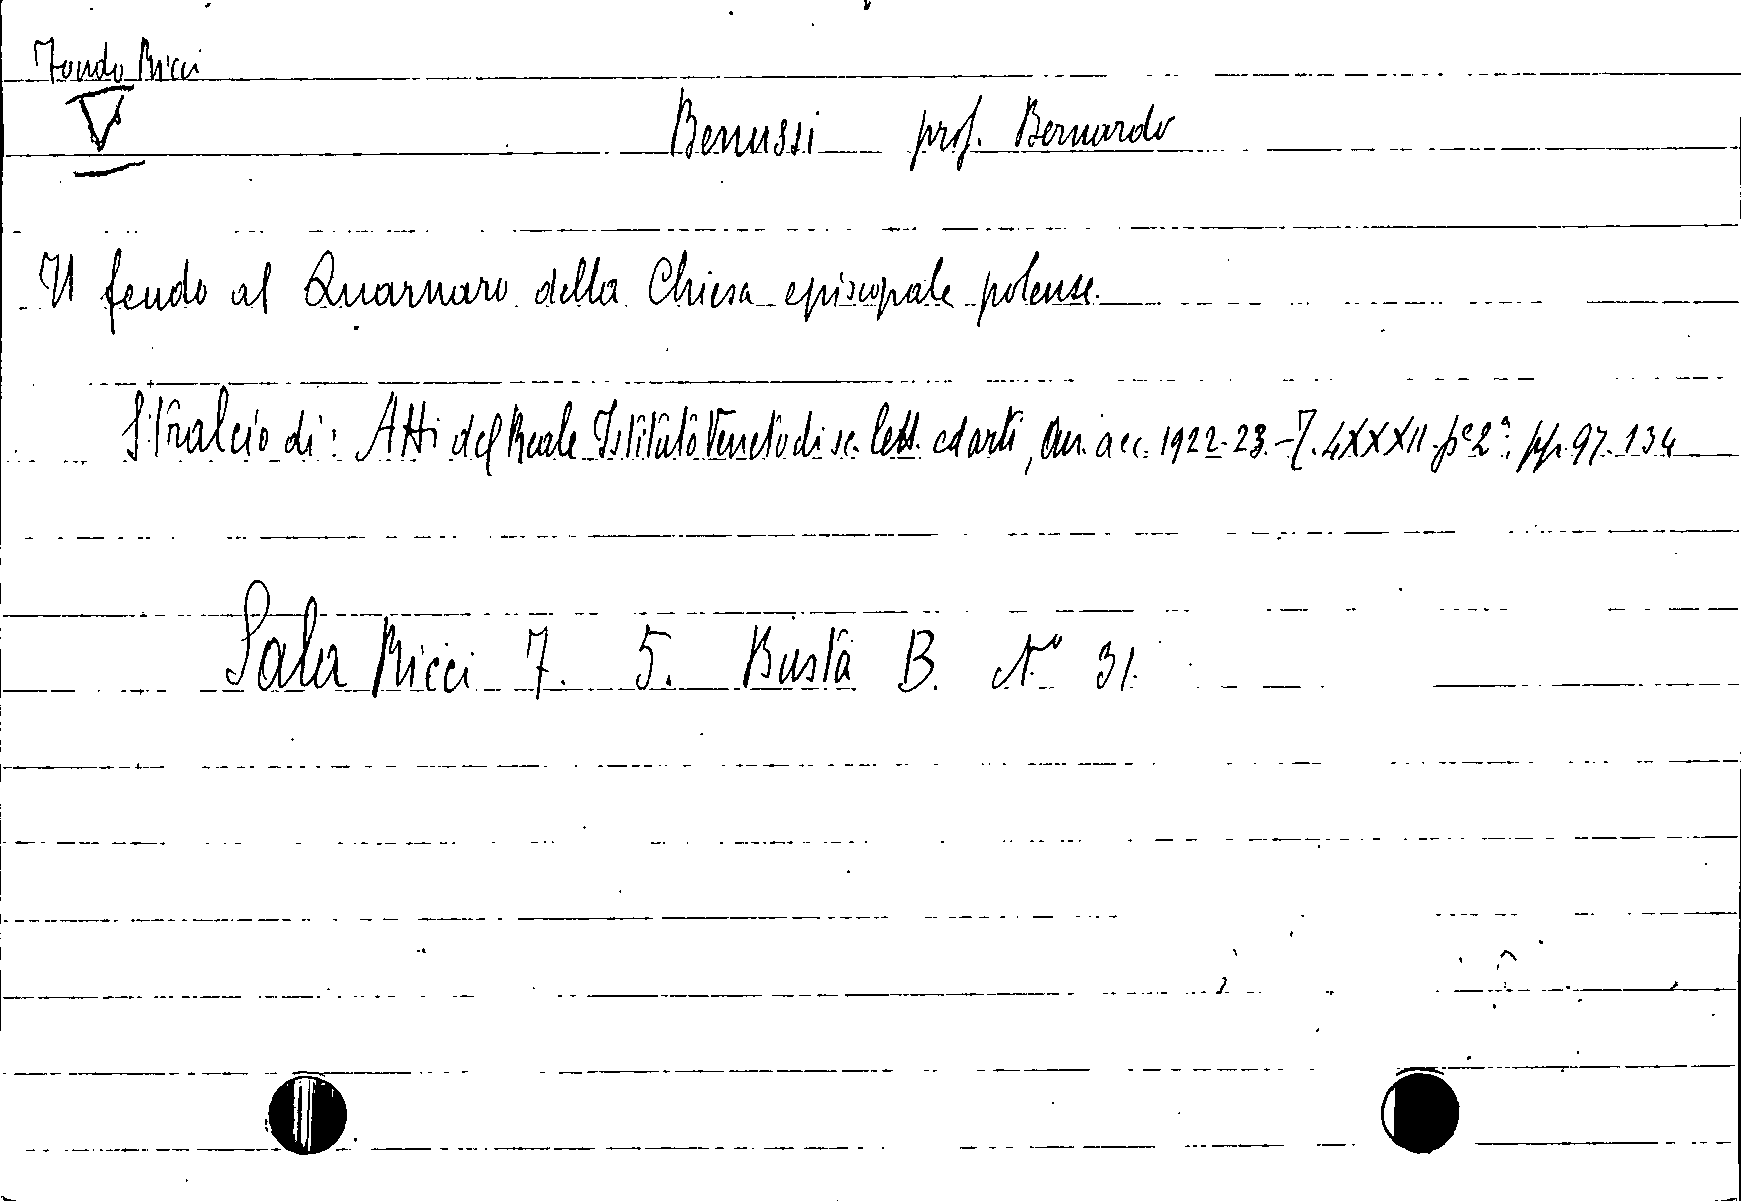 Fondo Ricci
V
Benussi prof. Bernardo
Il feudo al Quarnaro della Chiesa episcopale polense.
Stralcio di: Atti del Reale Istituto Veneto di sc. lett. ed arti, An. acc. 1922-23.-T. LXXXII. pe 2ª; pp. 97.134
Sala Ricci 7. 5. Busta B. Nº 31.